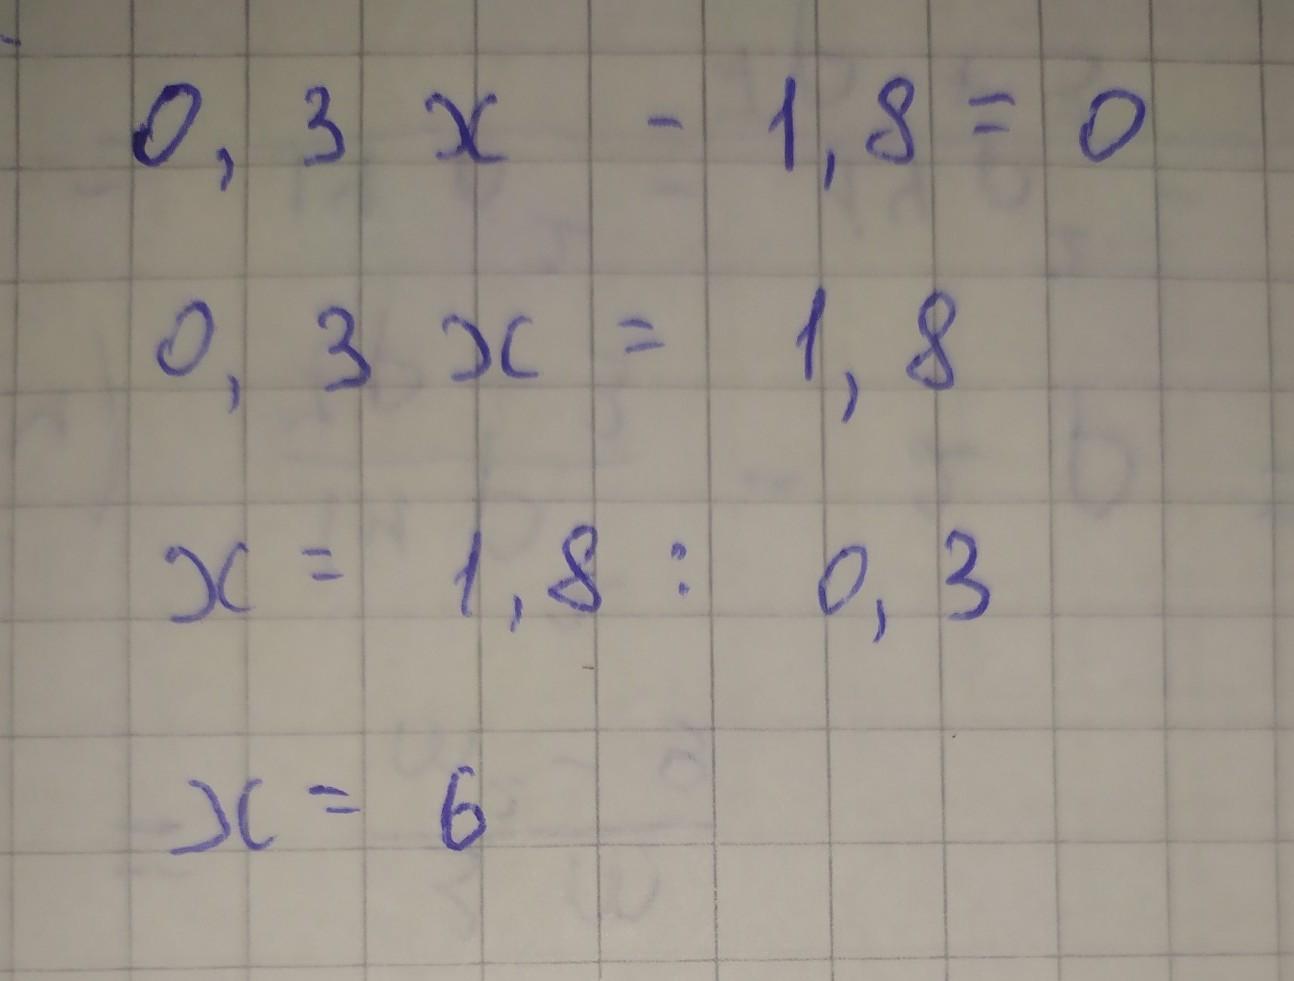 0,3x - 1,8 = 0
0,3x = 1,8
x = 1,8 : 0,3
x = 6